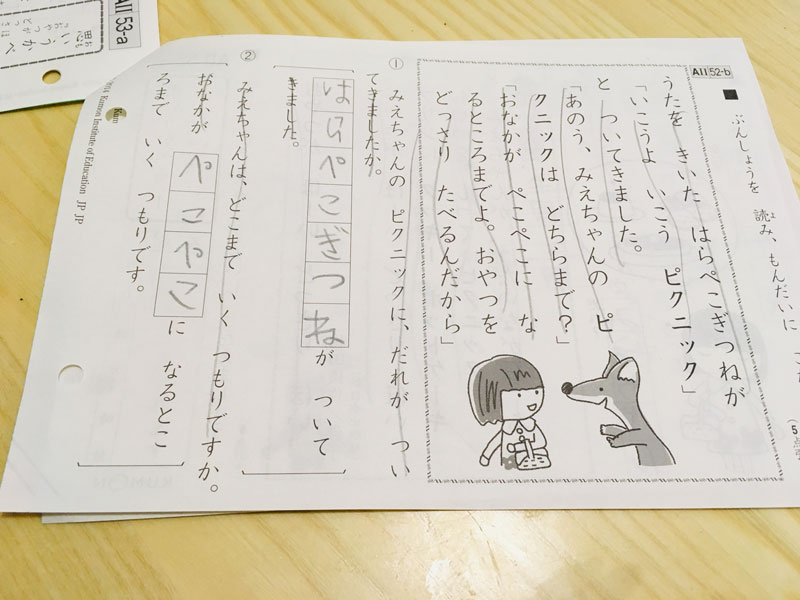 AII 52-b
■ ぶんしょうを 読み、もんだいに
うたを きいた はらぺこぎつねが
「いこうよ いこう ピクニック」
と ついてきました。
「あのう、みえちゃんの ピ
クニックは どちらまで?」
「おなかが ぺこぺこに な
るところまでよ。おやつを
どっさり たべるんだから」
① みえちゃんの ピクニックに、だれが つい
てきましたか。
はらぺこぎつねが ついて
きました。
② みえちゃんは、どこまで いく つもりですか。
おなかが ぺこぺこに なるとこ
ろまで いく つもりです。
Kumon Institute of Education JP JP
AII 53-a